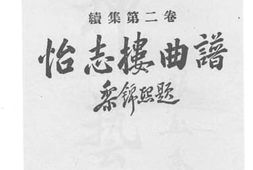 續集第二卷
怡志樓曲譜
黎錦熙題